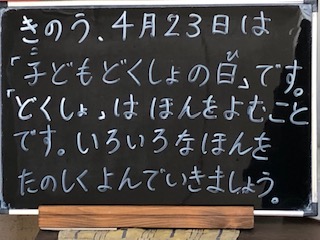 きのう、4月23日は
「子どもどくしょの日」です。
「どくしょ」は ほんをよむこと
です。いろいろなほんを
たのしくよんでいきましょう。